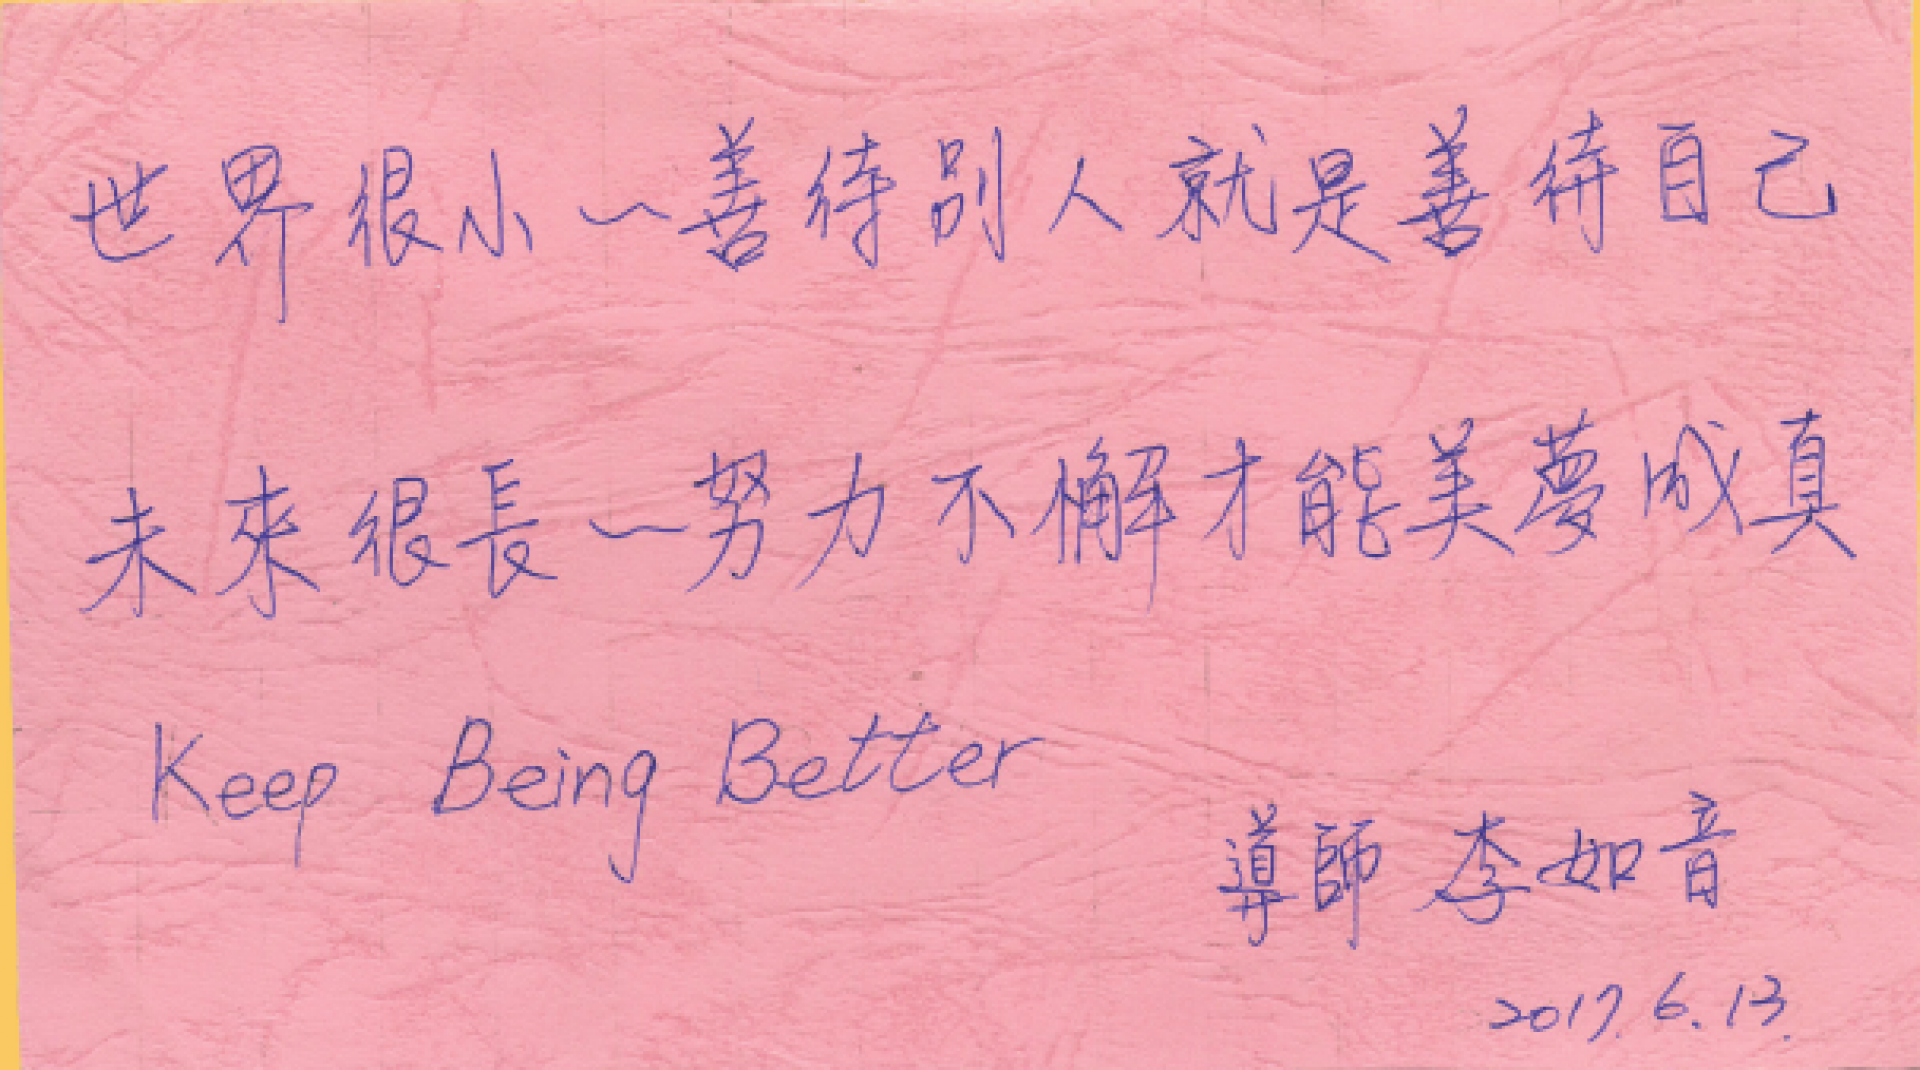 世界很小~善待別人就是善待自己
未來很長~努力不懈才能美夢成真
Keep Being Better
導師 李如音
2017.6.13.